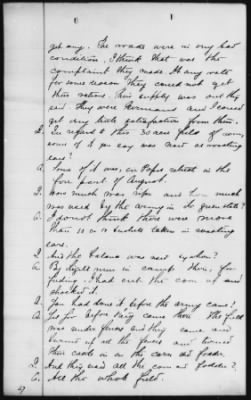 get any. The roads were in very bad
condition. I think that was the
complaint they made. At any rate
for some reason they could not get
their rations. Their supply was out they
said they were Germans and I could
get very little satisfaction from them.
Q. In regard to this 30 acre field of corn
some of it you say was used as roasting
ears?
A. Some of it was, on Popes retreat in the
fore part of August.
Q. How much was ripe and how much
was used by the army in its green state?
A. I do not think there were more
than 10 or bushels taken in roasting
ears.
Q. And the balance was used when?
A. By men in camp there, for
feeding. I had cut the corn up and
shocked it.
Q. You had done it before the army came?
A. Yes Sir before they came there the field
was under fence and they came and
burned up all the fences and turned
their cattle in on the corn and fodder.
Q. And they used all the corn and fodder?
A. All the whole field.